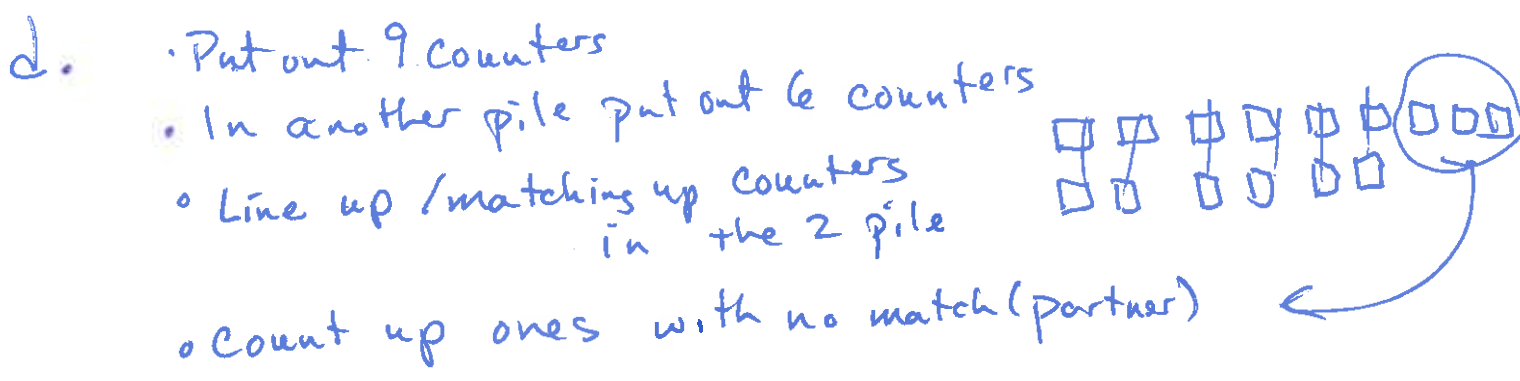 d. · Put out 9 counters
• In another pile put out 6 counters
• Line up / matching up counters
in the 2 pile
• Count up ones with no match (partner)